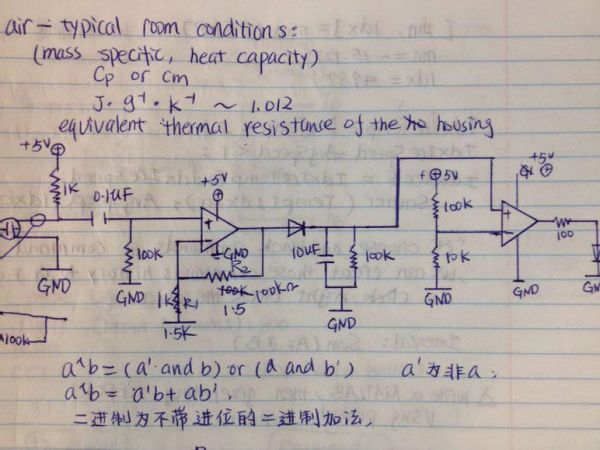 air - typical room conditions:
(mass specific, heat capacity)
Cp or cm
J · g⁻¹ · k⁻¹ ~ 1.012
equivalent thermal resistance of the housing
+5V
1K
0.1UF
GND
100K
+5V
100K
GND
+
-
GND
R2
100K 100KΩ
1.5
1K R1
1.5K
10UF
100K
GND
+5V
100K
10K
GND
+5V
+
-
GND
100
GND
a^b = (a' and b) or (a and b') a' 为非a.
a^b = a'b + ab'.
二进制为不带进位的二进制加法.